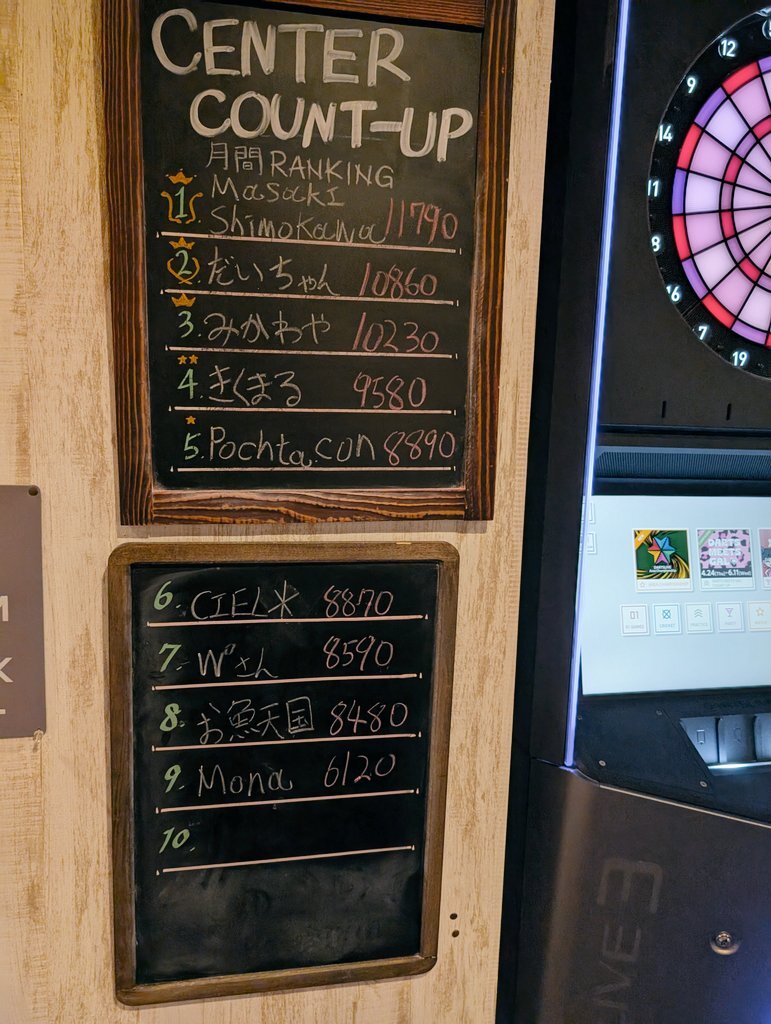 CENTER
COUNT-UP
月間RANKING
1 Masaki
Shimokawa 11790
2 だいちゃん 10860
3. みかわや 10230
4. きくまる 9580
5. Pochta.con 8890
6. CIEL米 8870
7. W°さん 8590
8. お魚天国 8480
9. Mona 6120
10.
12
9
14
11
8
16
7
19
DARTS
MEETS
GAL